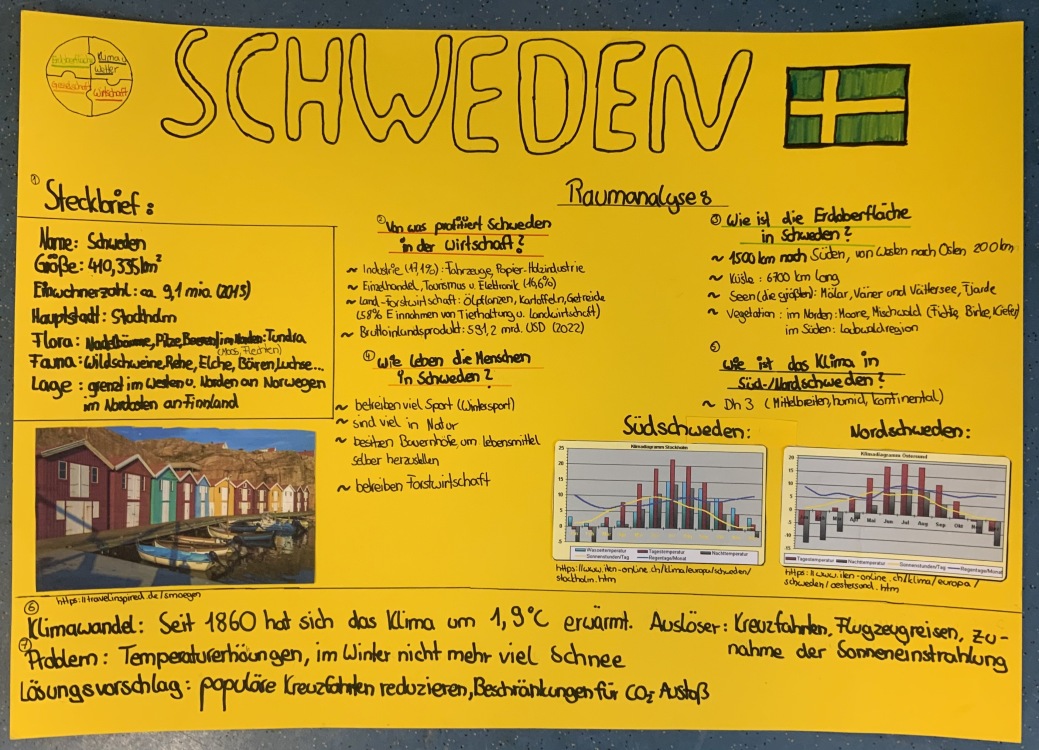 SCHWEDEN
Erdoberfläche
Klima u.
Wetter
Gesellschaft
Wirtschaft
① Steckbrief:
Name: Schweden
Größe: 410,335 km²
Einwohnerzahl: ca. 9,1 mio. (2015)
Hauptstadt: Stockholm
Flora: Nadelbäume, Pilze, Beeren/im Norden: Tundra
(Moos, Flechten)
Fauna: Wildschweine, Rehe, Elche, Bären, Luchse...
Lage: grenzt im Westen u. Norden an Norwegen
im Nordosten an Finnland
https://travelinspired.de/smoegen
Raumanalyse:
② Von was profitiert Schweden
in der Wirtschaft?
~ Industrie (17,1%): Fahrzeuge, Papier-Holzindustrie
~ Einzelhandel, Tourismus u. Elektronik (16,6%)
~ Land-Forstwirtschaft: Ölpflanzen, Kartoffeln, Getreide
(58% Einnahmen von Tierhaltung u. Landwirtschaft)
~ Bruttoinlandsprodukt: 591,2 mrd. USD (2022)
④ Wie leben die Menschen
in Schweden?
~ betreiben viel Sport (Wintersport)
~ sind viel in Natur
~ besitzen Bauernhöfe, um Lebensmittel
selber herzustellen
~ betreiben Forstwirtschaft
③ Wie ist die Erdoberfläche
in Schweden?
~ 1500 km nach Süden, von Westen nach Osten 200 km
~ Küste: 6700 km lang
~ Seen (die größten): Mälar, Väner und Vättersee, Fjorde
~ Vegetation: im Norden: Moore, Mischwald (Fichte, Birke, Kiefer)
im Süden: Laubwaldregion
⑤ Wie ist das Klima in
Süd-/Nordschweden?
~ Dh 3 (Mittelbreiten, humid, kontinental)
Südschweden:
Klimadiagramm Stockholm
25
20
15
10
5
0
-5
Wassertemperatur Tagestemperatur Nachttemperatur
Sonnenstunden/Tag Regentage/Monat
https://www.iten-online.ch/klima/europa/schweden/
stockholm.htm
Nordschweden:
Klimadiagramm Östersund
20
15
10
5
0
-5
-10
-15
Apr Mai Jun Jul Aug Sep Okt
Tagestemperatur Nachttemperatur Sonnenstunden/Tag Regentage/Monat
https://www.iten-online.ch/klima/europa/
schweden/oestersund.htm
⑥ Klimawandel: Seit 1860 hat sich das Klima um 1,9°C erwärmt. Auslöser: Kreuzfahrten, Flugzeugreisen, Zu-
nahme der Sonneneinstrahlung
⑦ Problem: Temperaturerhöungen, im Winter nicht mehr viel Schnee
Lösungsvorschlag: populäre Kreuzfahrten reduzieren, Beschränkungen für CO₂ Austoß